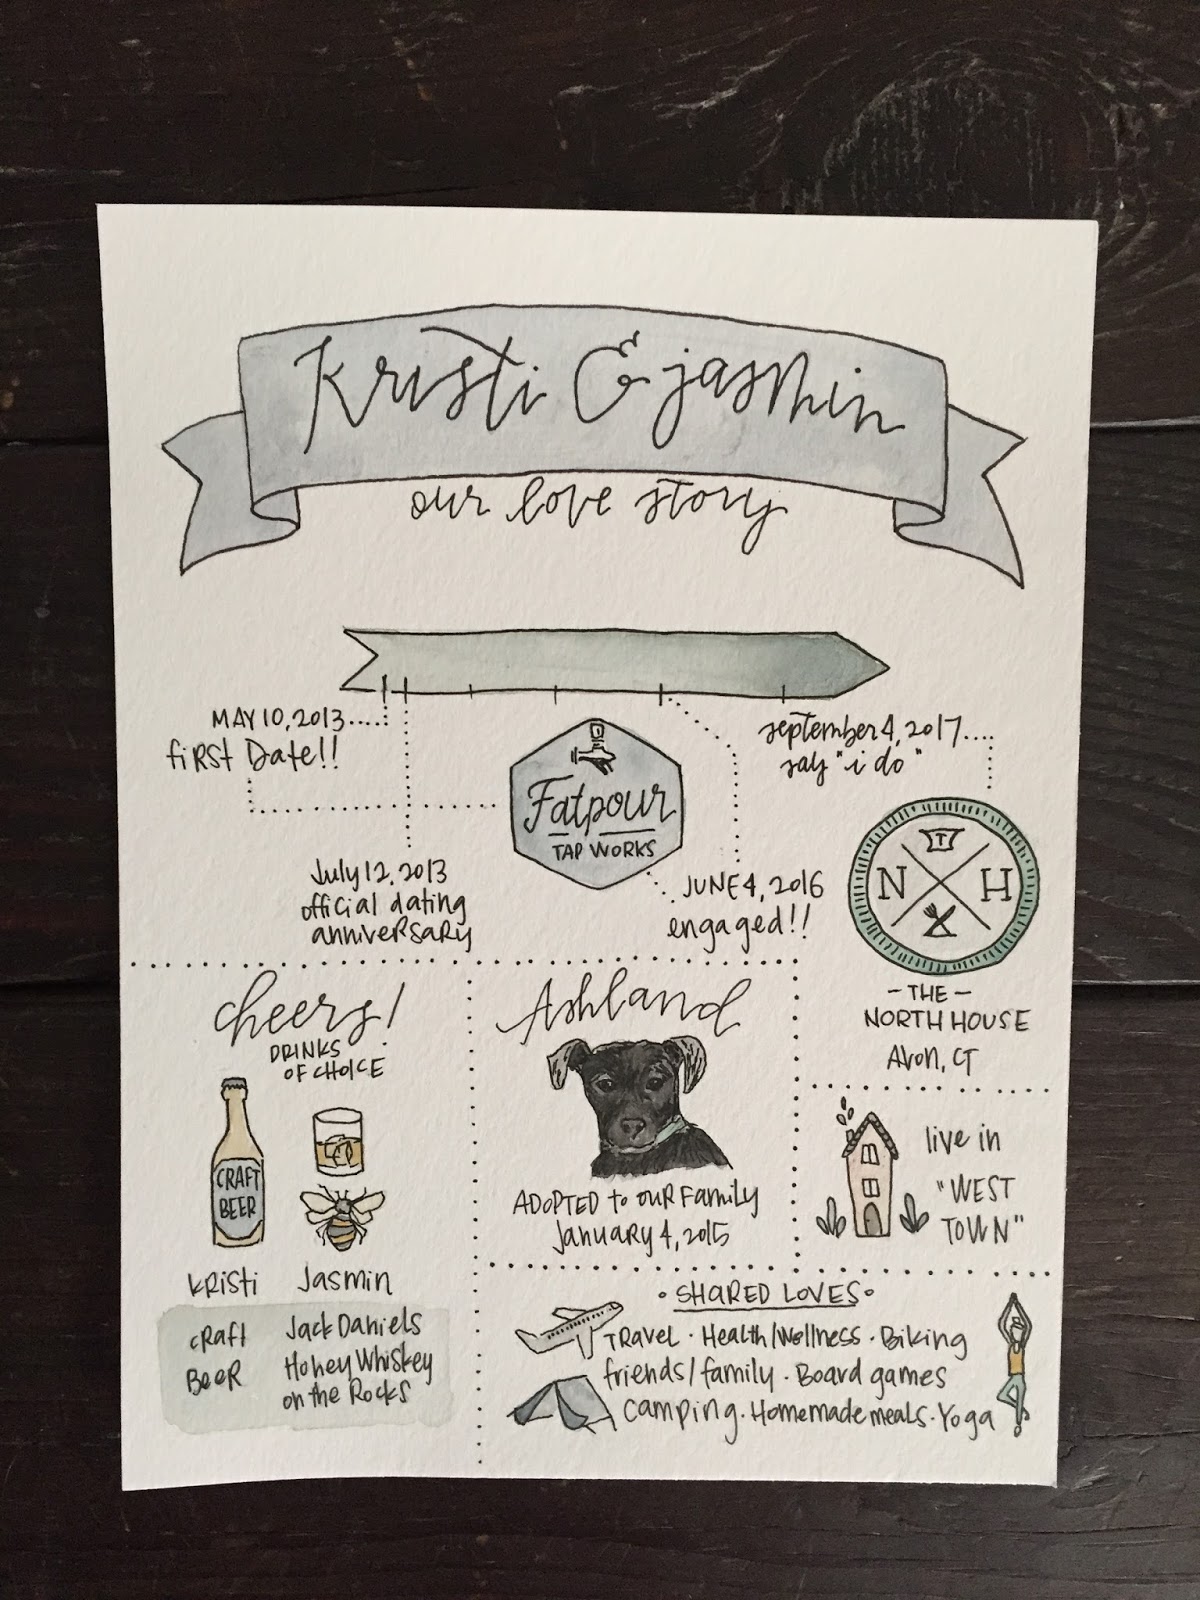 Kristi & jasmin
our love story
MAY 10, 2013....
first Date!!
september 4, 2017....
say "i do"
Fatpour
TAP WORKS
July 12, 2013
official dating
anniversary
JUNE 4, 2016
engaged!!
T
N H
- THE -
NORTH HOUSE
Avon, CT
cheers!
DRINKS
OF CHOICE
CRAFT
BEER
kristi Jasmin
craft
Beer
Jack Daniels
Honey Whiskey
on the Rocks
Ashland
ADOPTED to our Family
January 4, 2015
live in
"WEST
TOWN"
• SHARED LOVES •
Travel • Health/Wellness • Biking
friends/family • Board games
camping • Homemade meals • Yoga